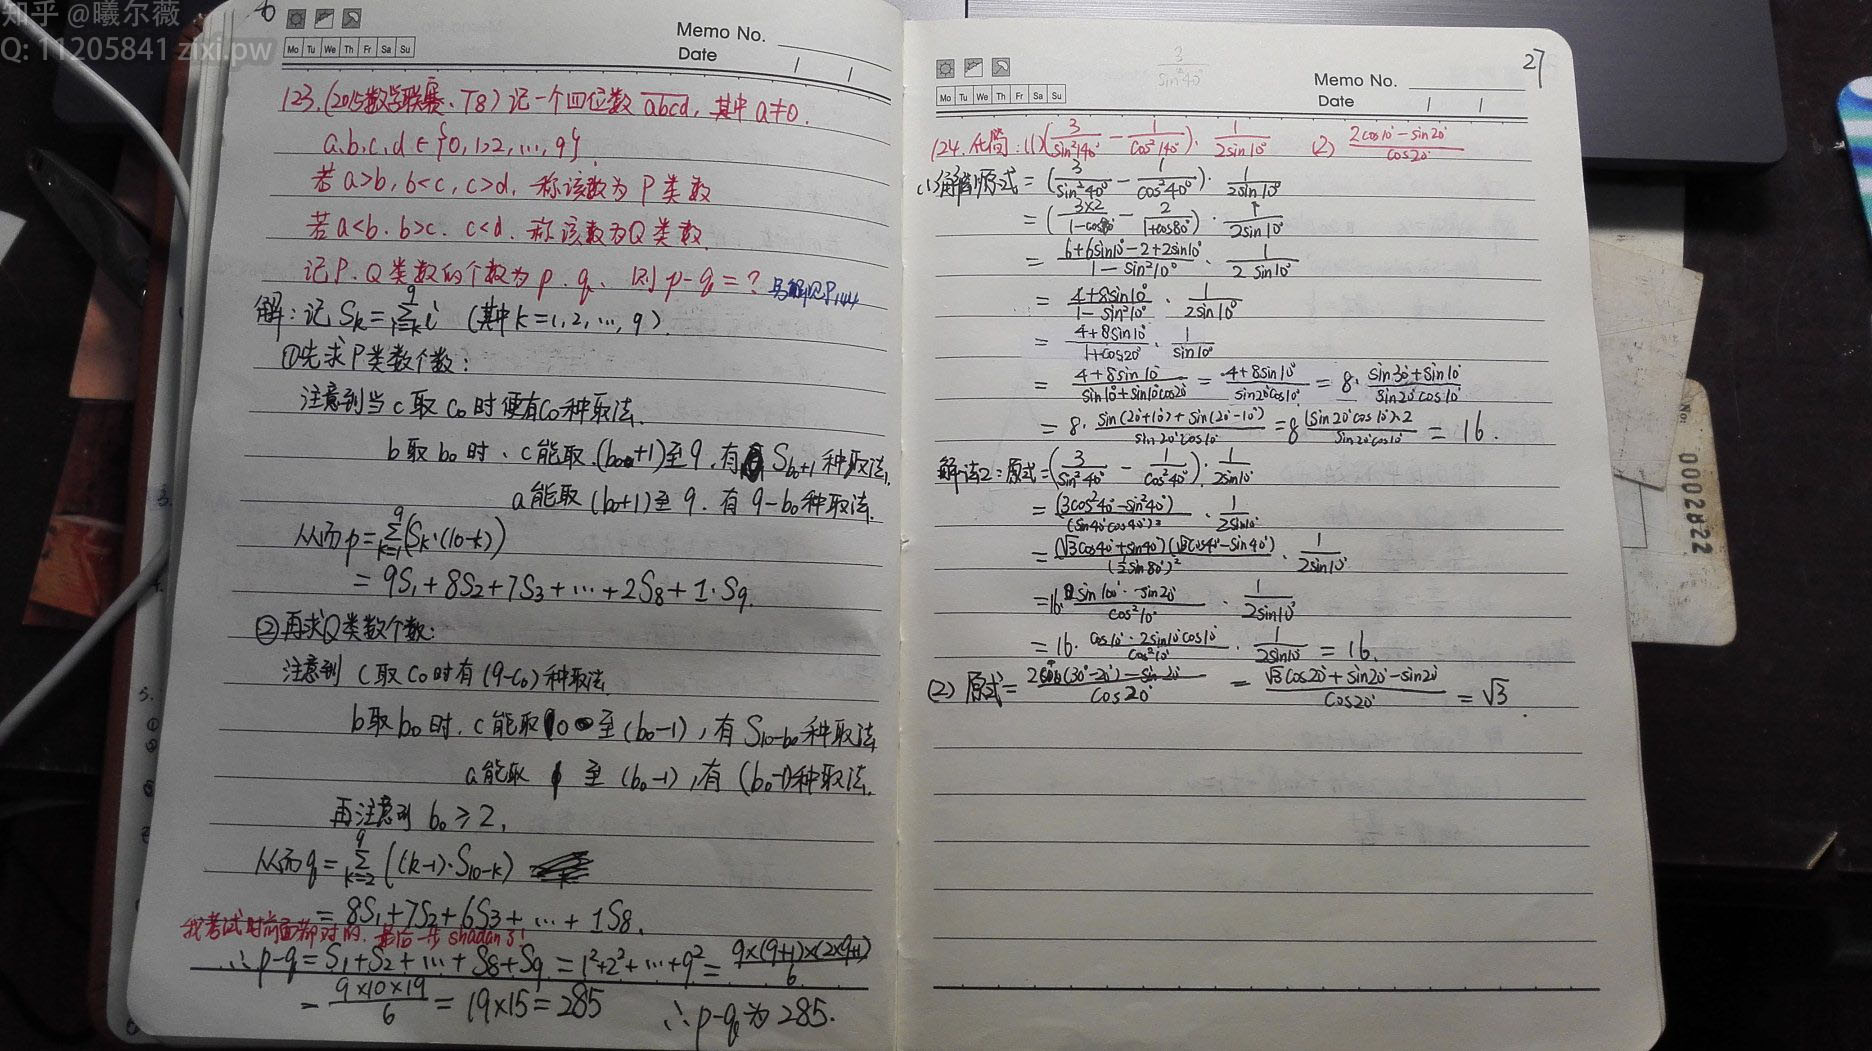 知乎 @曦尔薇
Q: 11205841 zixi.pw
Memo No.
Mo Tu We Th Fr Sa Su
Date
123.(2015数学联赛、T8) 记一个四位数 abcd, 其中 a≠0.
a,b,c,d∈{0,1,2,…,9}
若 a>b, b<c, c>d, 称该数为 P 类数
若 a<b, b>c, c<d, 称该数为Q类数.
记P、Q类数的个数为 p、q、则 p-q=? 另解见P144
解:记 Sk=∑(i=k→9) i (其中 k=1,2,…,9).
①先求P类数个数:
注意到当 c 取 c0 时便有c0种取法.
b取 b0 时、c能取 (b0+1)至9,有 S_{b0+1} 种取法,
a能取 (b0+1)至 9. 有 9-b0种取法.
从而p=∑(k=1→9)(Sk·(10-k))
= 9S1+8S2+7S3+…+2S8+1·S9.
②再求Q类数个数:
注意到 c取c0时有(9-c0)种取法
b取b0时, c能取 0 至(b0-1), 有 S_{10-b0}种取法
a能取 1 至 (b0-1),有 (b0-1)种取法.
再注意到 b0≥2,
从而q=∑(k=2→9)((k-1)·S_{10-k})
= 8S1+7S2+6S3+…+1S8.
我考试时前面都对的, 最后一步shadan了!
∴p-q=S1+S2+…+S8+S9=1²+2²+…+9²=9×(9+1)×(2×9+1)/6
=9×10×19/6=19×15=285 ∴p-q为285.
27
3/sin²40°
Memo No.
Mo Tu We Th Fr Sa Su
Date
124.化简:(1)(3/sin²140°-1/cos²140°)·1/2sin10° (2) 2cos10°-sin20°/cos20°
(1)解:原式=(3/sin²40°-1/cos²40°)·1/2sin10°
=(3×2/1-cos80°-2/1+cos80°)·1/2sin10°
=6+6sin10°-2+2sin10°/1-sin²10°·1/2sin10°
=4+8sin10°/1-sin²10°·1/2sin10°
=4+8sin10°/1+cos20°·1/sin10°
=4+8sin10°/sin10°+sin10°cos20°=4+8sin10°/sin20°cos10°=8·sin30°+sin10°/sin20°cos10°
=8·sin(20°+10°)+sin(20°-10°)/sin20°cos10°=8(sin20°cos10°)×2/sin20°cos10°=16.
解法2:原式=(3/sin²40°-1/cos²40°)·1/2sin10°
=(3cos²40°-sin²40°)/(sin40°cos40°)²·1/2sin10°
=(√3cos40°+sin40°)(√3cos40°-sin40°)/(½sin80°)²·1/2sin10°
=16·sin100°·sin20°/cos²10°·1/2sin10°
=16·cos10°·2sin10°cos10°/cos²10°·1/2sin10°=16.
(2)原式=2cos(30°-20°)-sin20°/cos20°=√3cos20°+sin20°-sin20°/cos20°=√3.
No:
0002822